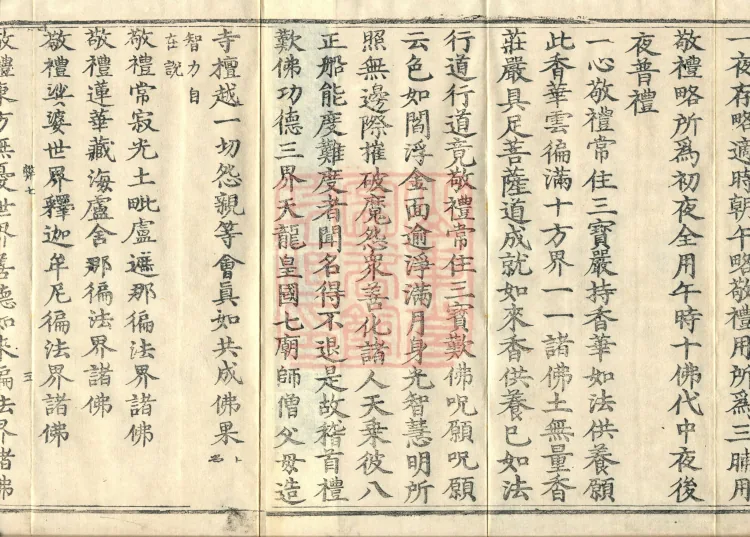 一夜存略適時朝午略敬禮用所爲三晡用
敬禮略所爲初夜全用午時十佛代中夜後
夜普禮
一心敬禮常住三寶嚴持香華如法供養願
此香華雲徧滿十方界一一諸佛土無量香
莊嚴具足菩薩道成就如來香供養已如法
行道行道竟敬禮常住三寶歎佛呪願呪願
云色如閻浮金面逾淨滿月身光智慧明所
照無邊際摧破魔怨衆善化諸人天乘彼八
正船能度難度者聞名得不退是故稽首禮
歎佛功德三界天龍皇國七廟師僧父母造
寺檀越一切怨親等會眞如共成佛果
智力自
在說
敬禮常寂光土毗盧遮那徧法界諸佛
敬禮蓮華藏海盧舍那徧法界諸佛
敬禮娑婆世界釋迦牟尼徧法界諸佛
三
敬禮東方無憂世界善德如來徧法界諸佛